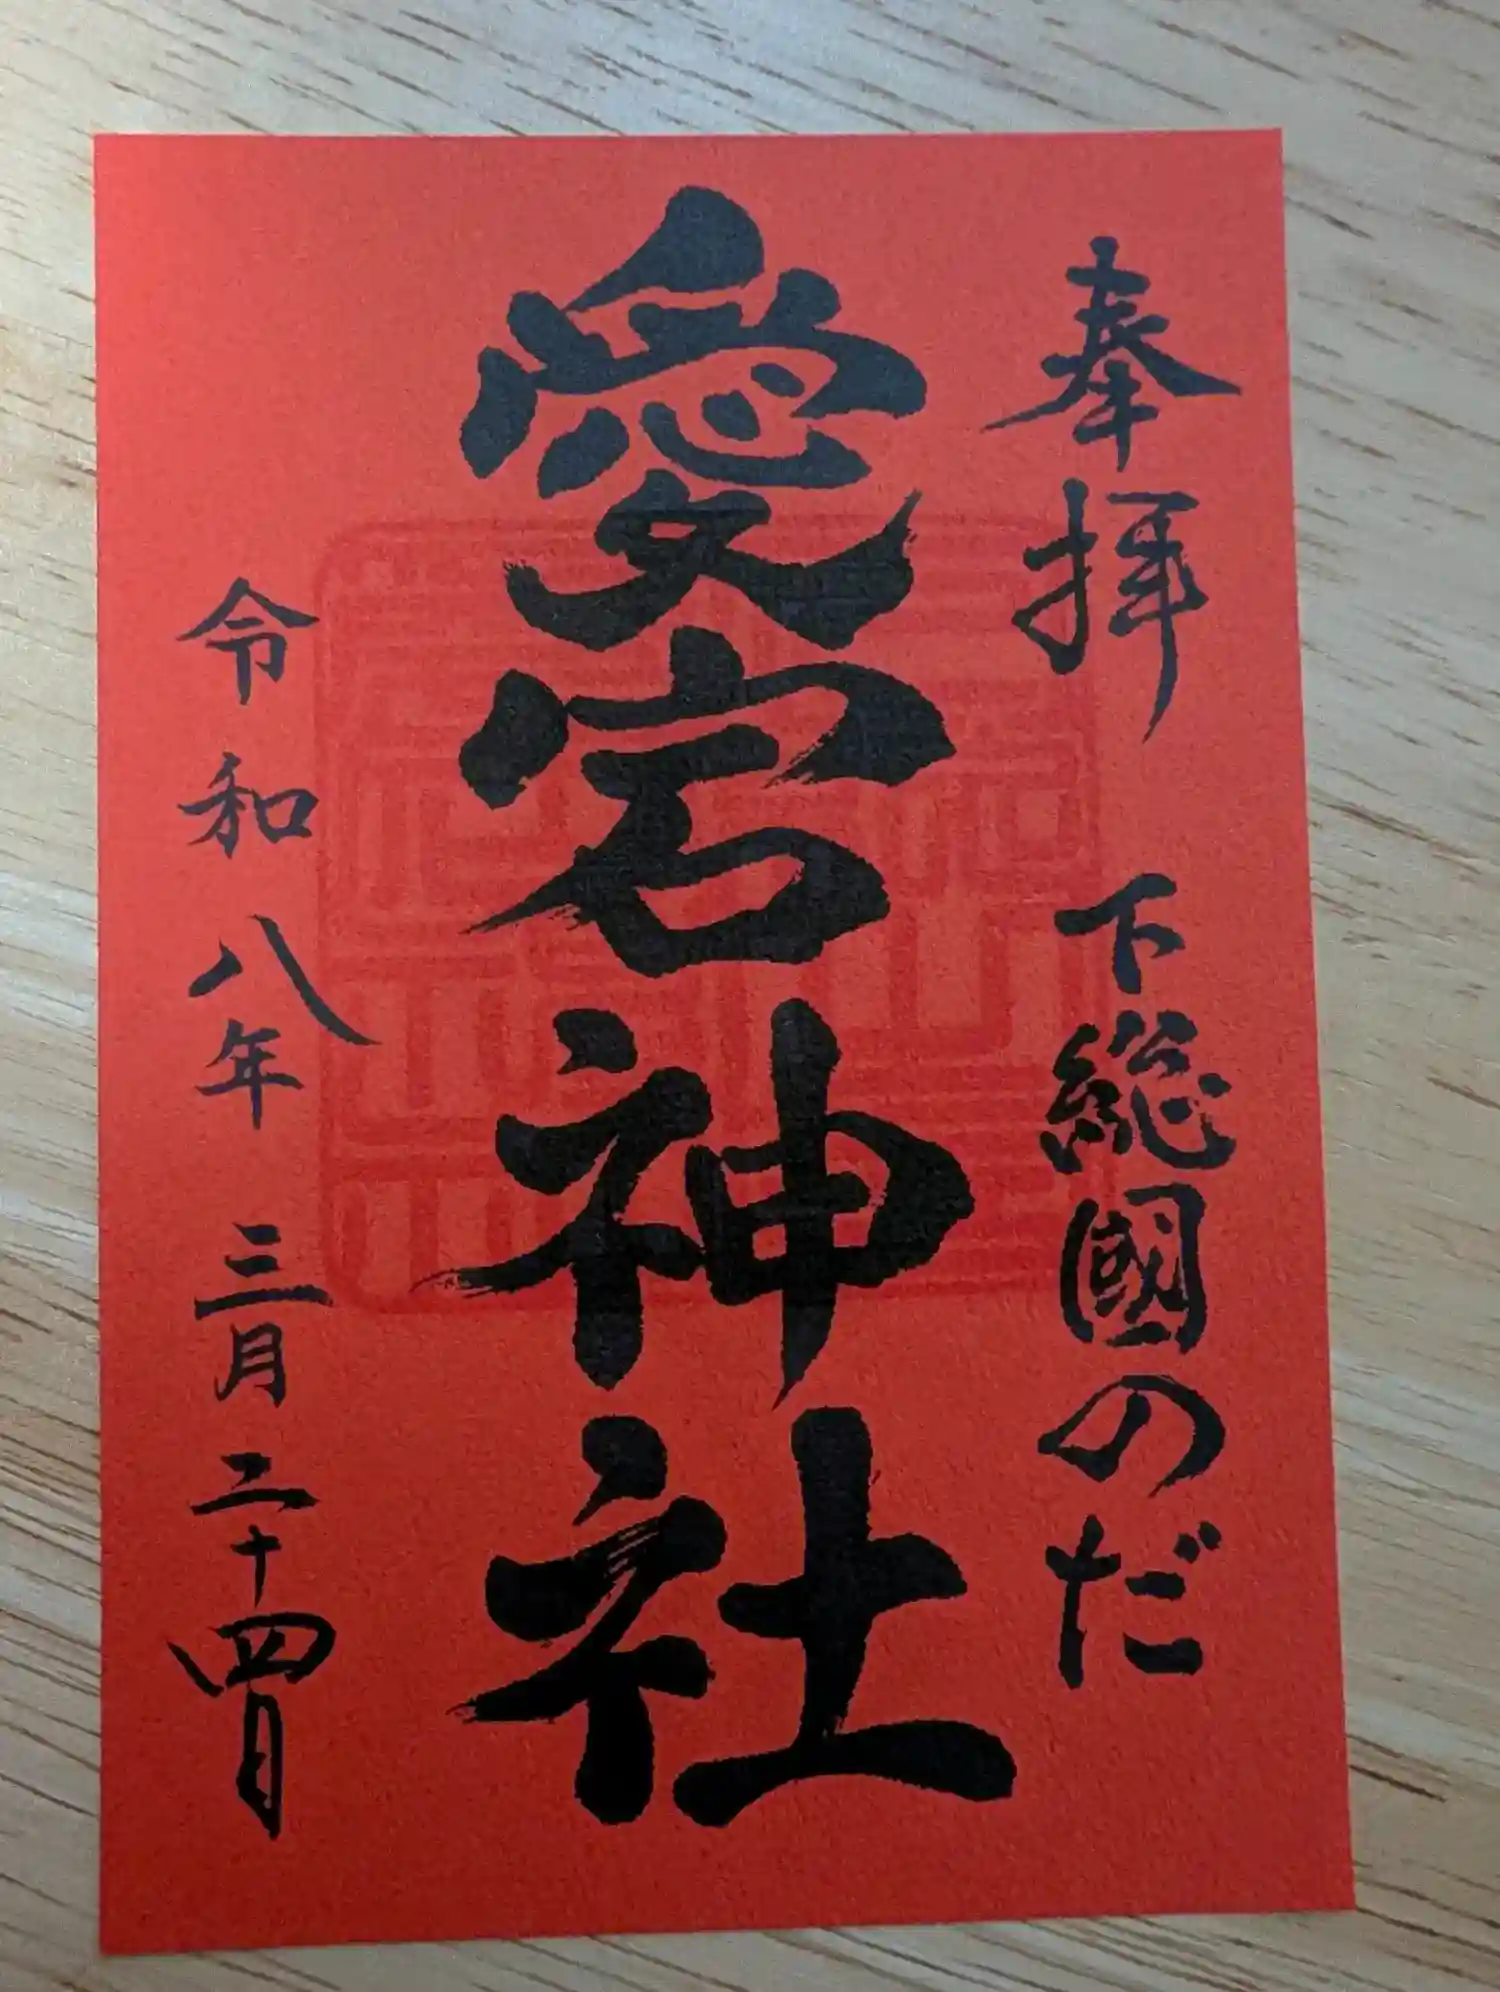 奉拝 下総國のだ
愛宕神社
令和八年 三月二十四日